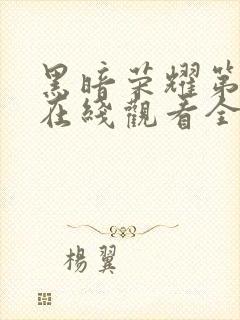 黑暗荣耀第
在綫觀看全
楊翼